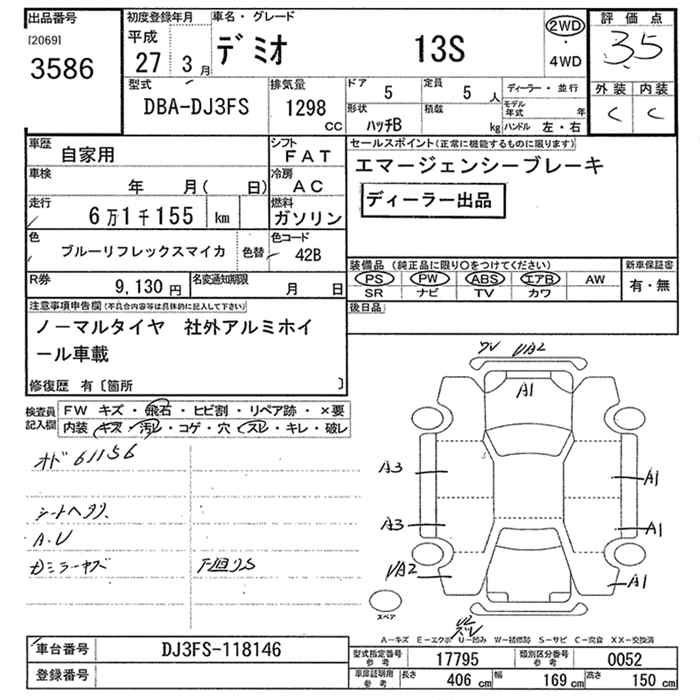 出品番号
[2069]
3586
初度登録年月
平成
27 3 月
車名・グレード
デミオ 13S
2WD
・
4WD
評価点
3.5
外装 内装
C C
型式
DBA-DJ3FS
排気量
1298 CC
ドア 5
定員 5 人
形状 ハッチB
積載 kg
ディーラー・並行
モデル年式 年
ハンドル 左・右
車歴 自家用
シフト FAT
車検 年 月( 日)
冷房 AC
走行 6万1千155 km
燃料 ガソリン
色 ブルーリフレックスマイカ 色替
色コード 42B
R券 9,130 円
名変通知期限 月 日
セールスポイント(正常に機能するものに限ります)
エマージェンシーブレーキ
ディーラー出品
装備品(純正品に限り○をつけてください)
PS PW ABS エアB AW
SR ナビ TV カワ
新車保証書
有・無
後日品
注意事項申告欄(不具合内容等は具体的に記入して下さい)
ノーマルタイヤ 社外アルミホイ
ール車載
修復歴 有〔箇所 〕
検査員記入欄
FW キズ・飛石・ヒビ割・リペア跡・×要
内装 キズ・汚レ・コゲ・穴・スレ・キレ・破レ
オド61156
シートヘタリ
A・U
Dミラーキズ 下廻りS
UA2
A1
A3 A1
A3 A1
UA2 A1
スペア
A-キズ E-エクボ U-凹み W-補修跡 S-サビ C-腐食 XX-交換済
車台番号 DJ3FS-118146
登録番号
型式指定番号 参考 17795
類別区分番号 参考 0052
車庫証明用 参考
長さ 406 cm 幅 169 cm 高さ 150 cm